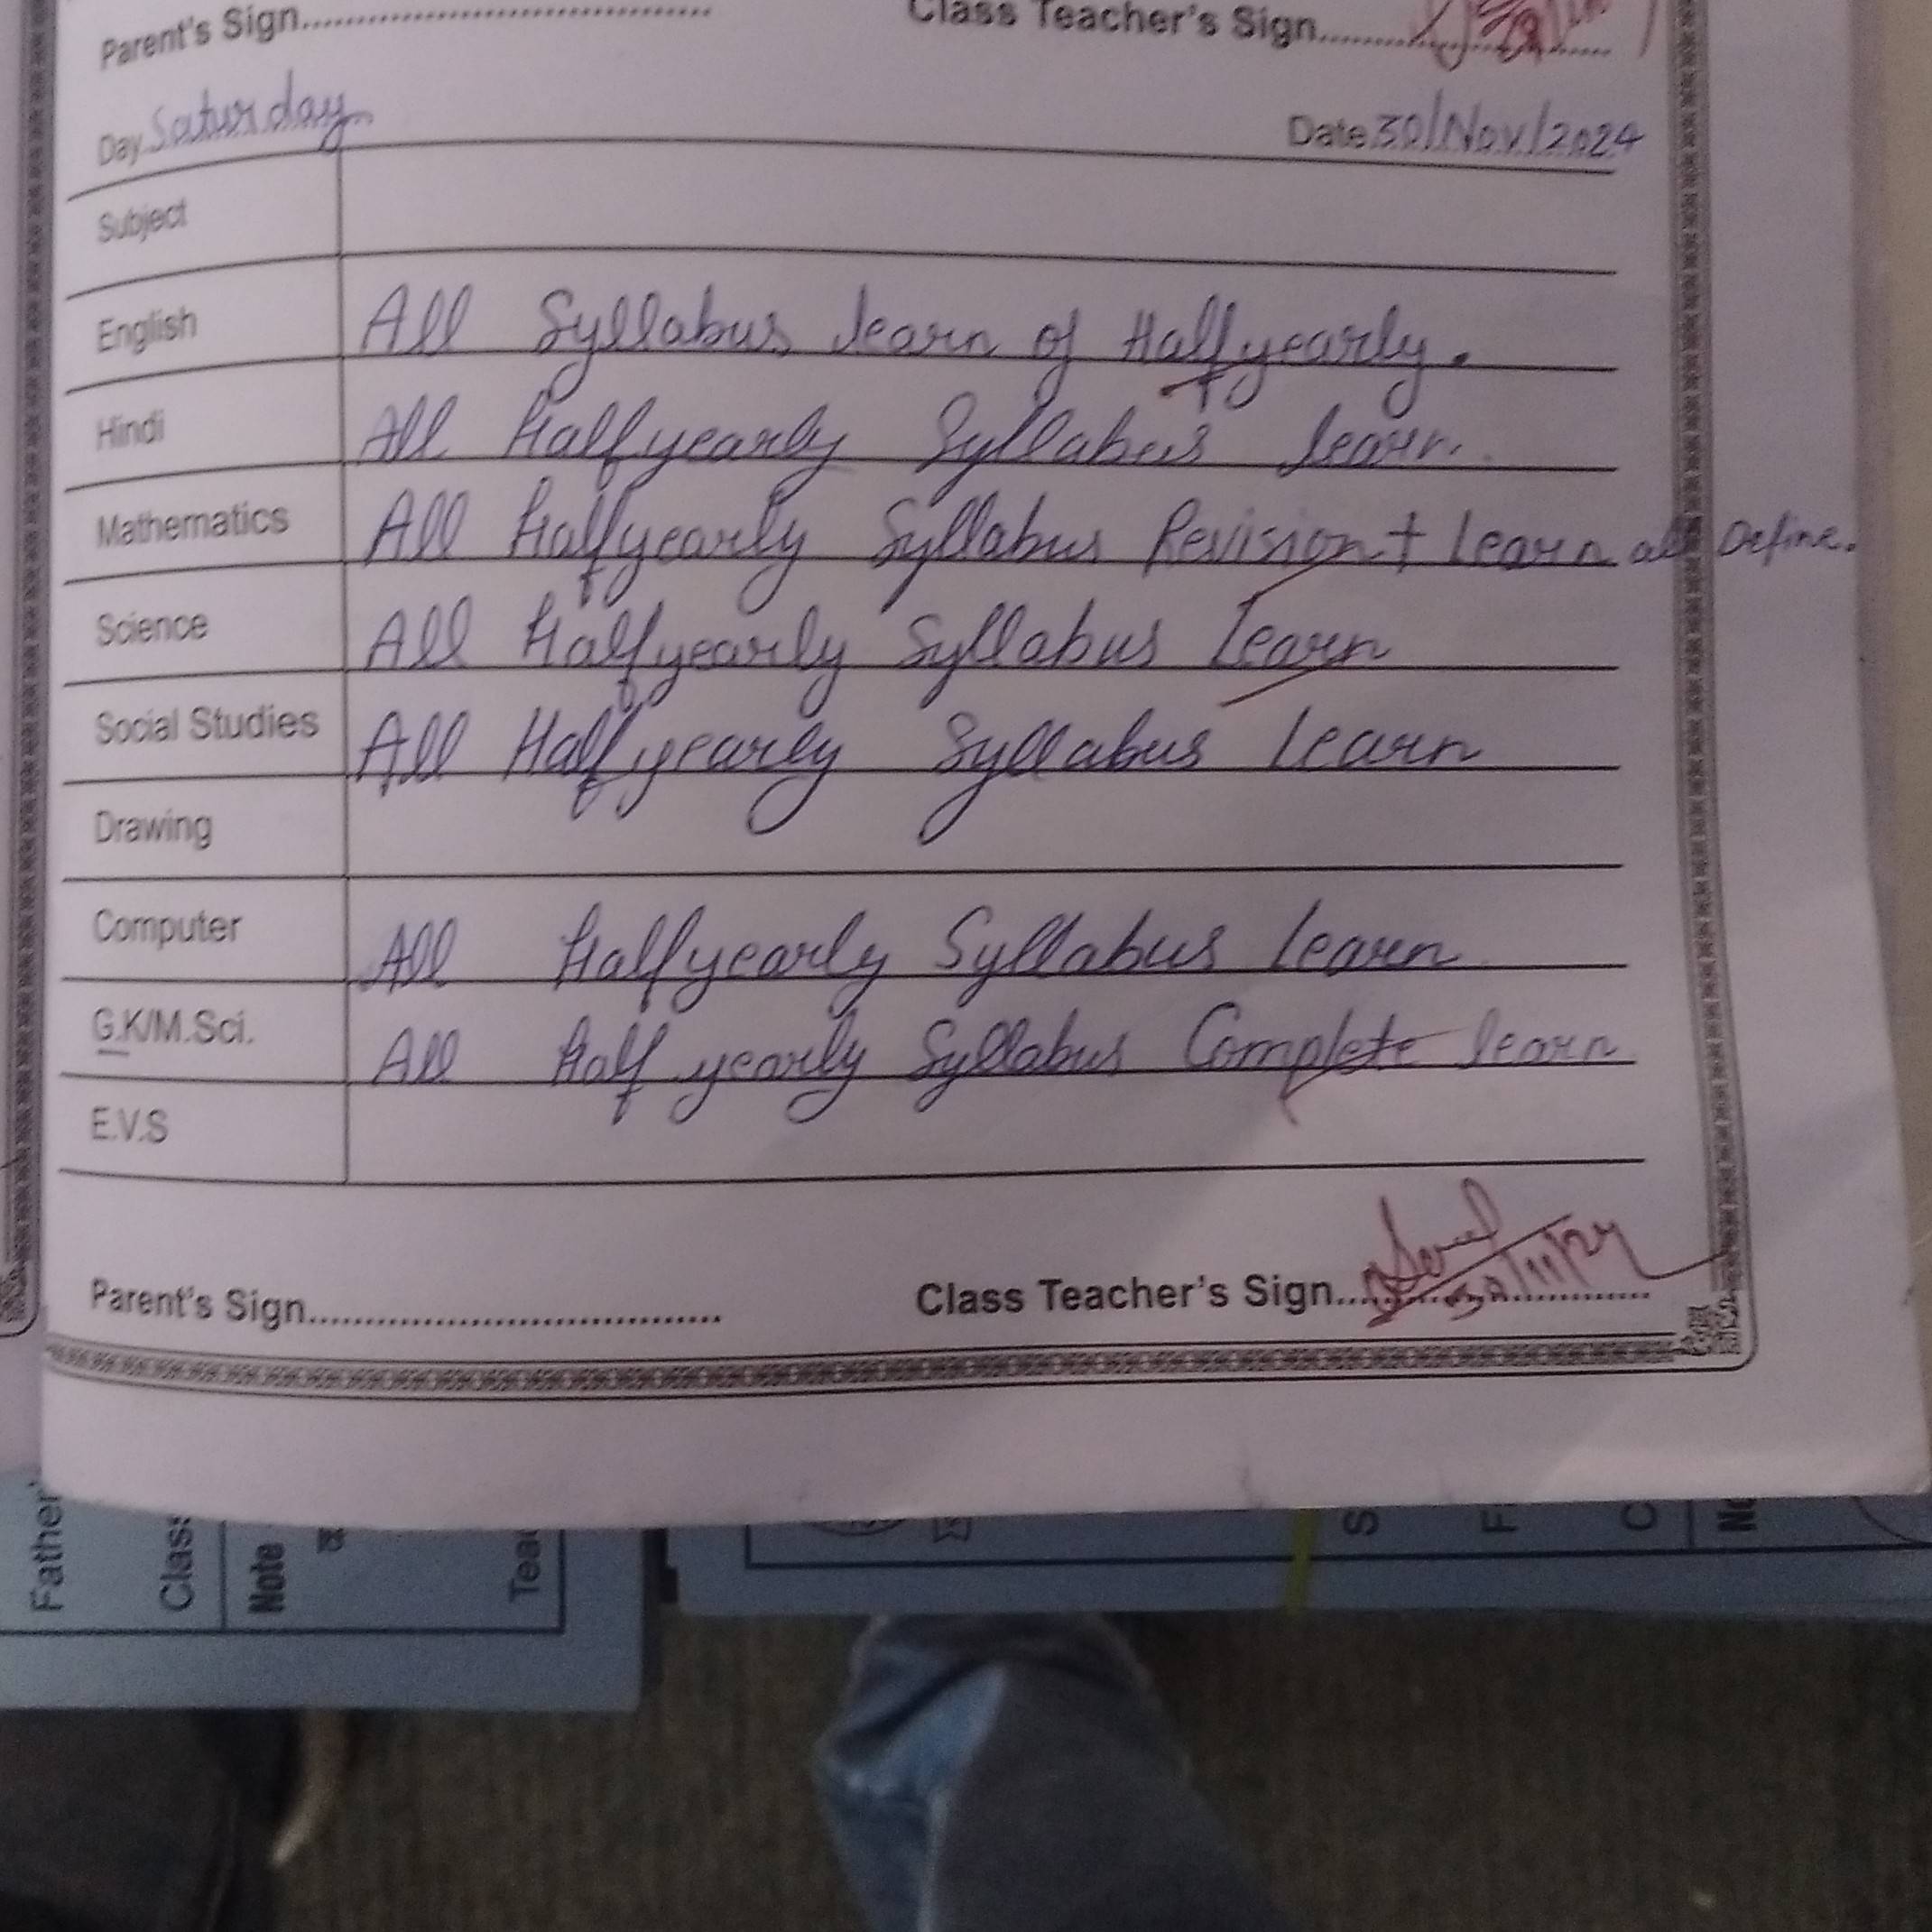 Parent's Sign.................................... Class Teacher's Sign..........................
Day Saturday Date 30/Nov/2024
Subject
English All Syllabus learn of Halfyearly.
Hindi All Halfyearly Syllabus learn.
Mathematics All Halfyearly Syllabus Revision + Learn all Define.
Science All Halfyearly Syllabus Learn
Social Studies All Halfyearly Syllabus Learn
Drawing
Computer All Halfyearly Syllabus Learn
G.K/M.Sci. All Half yearly Syllabus Complete learn
E.V.S
Parent's Sign.................................... Class Teacher's Sign.......................... 30/11/24
Father'
Class
Note